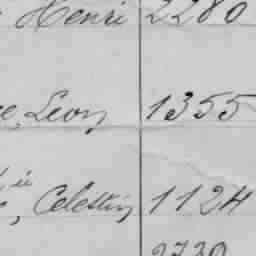 Henri 2280
ce, Leon 1355
Celestin 1124
2730